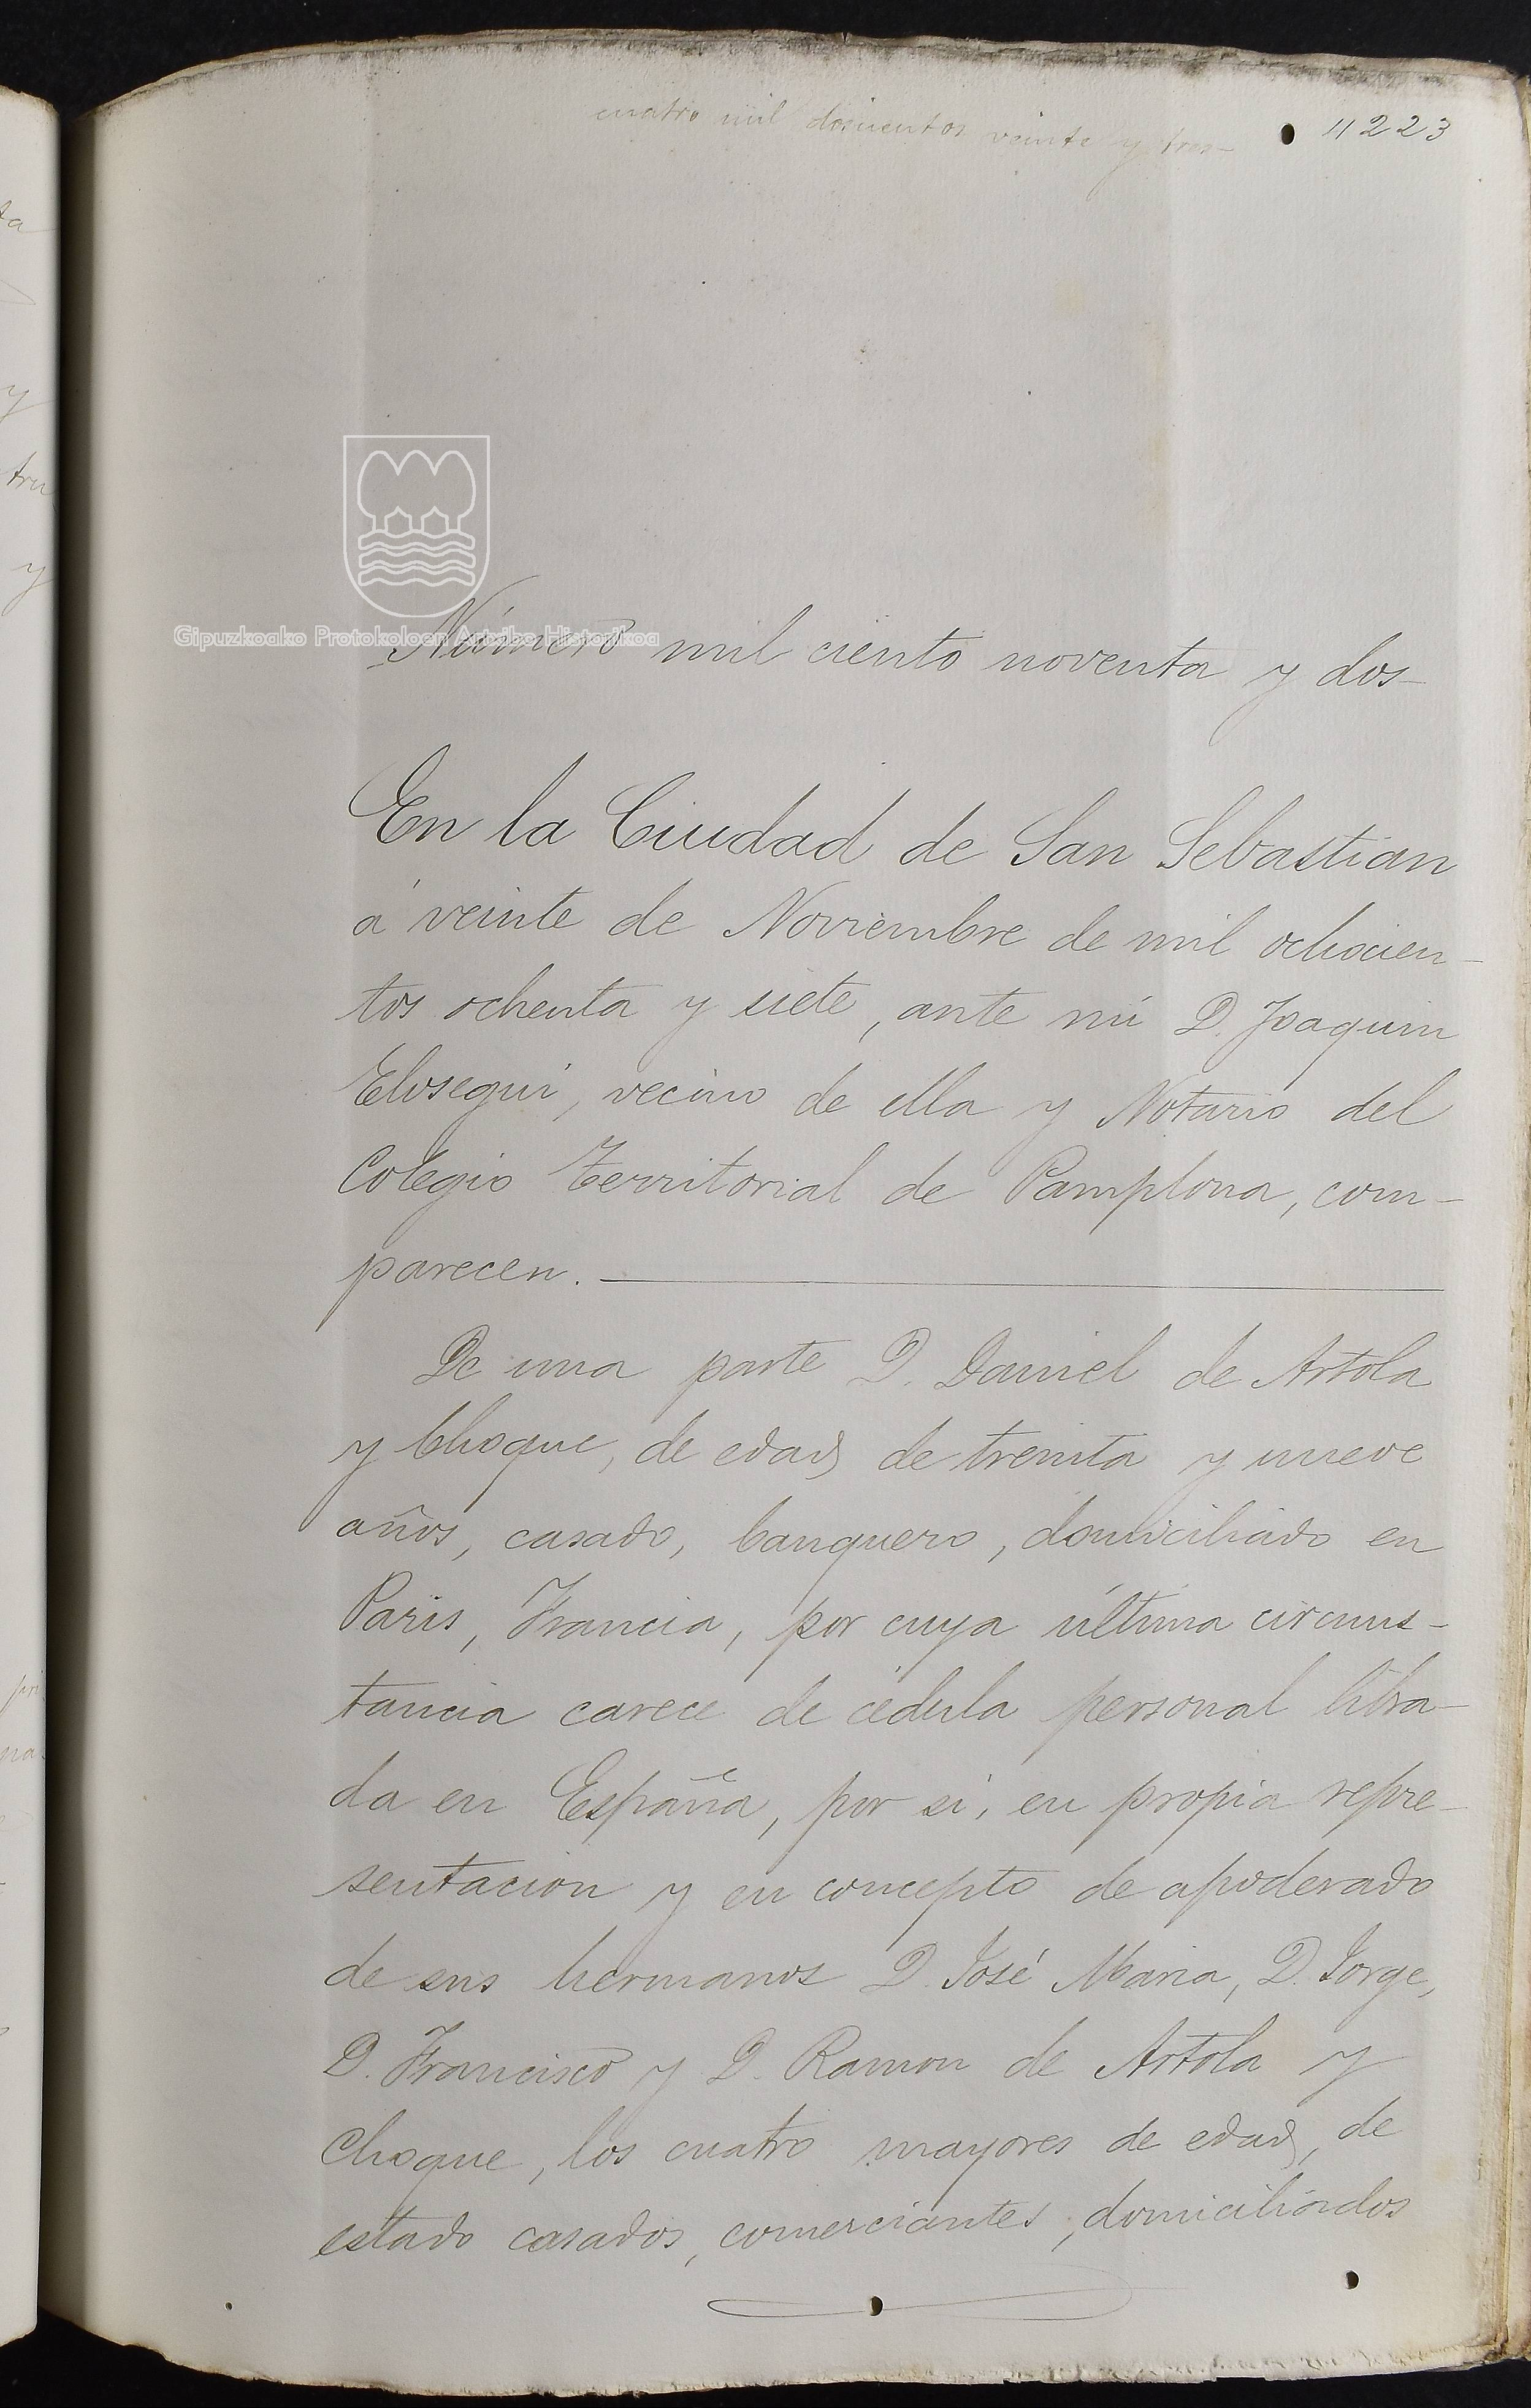 cuatro mil doscientos veinte y tres
4223
Gipuzkoako Protokoloen Artxibo Historikoa
Número mil ciento noventa y dos
En la Ciudad de San Sebastian
á veinte de Noviembre de mil ochocien-
tos ochenta y siete, ante mi D. Joaquin
Elosegui, vecino de ella y Notario del
Colegio territorial de Pamplona, com-
parecen.
De una parte D. Daniel de Artola
y Choque, de edad de treinta y nueve
años, casado, banquero, domiciliado en
Paris, Francia, por cuya última circuns-
tancia carece de cédula personal libra-
da en España, por si, en propia repre-
sentacion y en concepto de apoderado
de sus hermanos D. José Maria, D. Jorge,
D. Francisco y D. Ramon de Artola y
Choque, los cuatro mayores de edad, de
estado casados, comerciantes, domiciliados
ta
y
tru
y